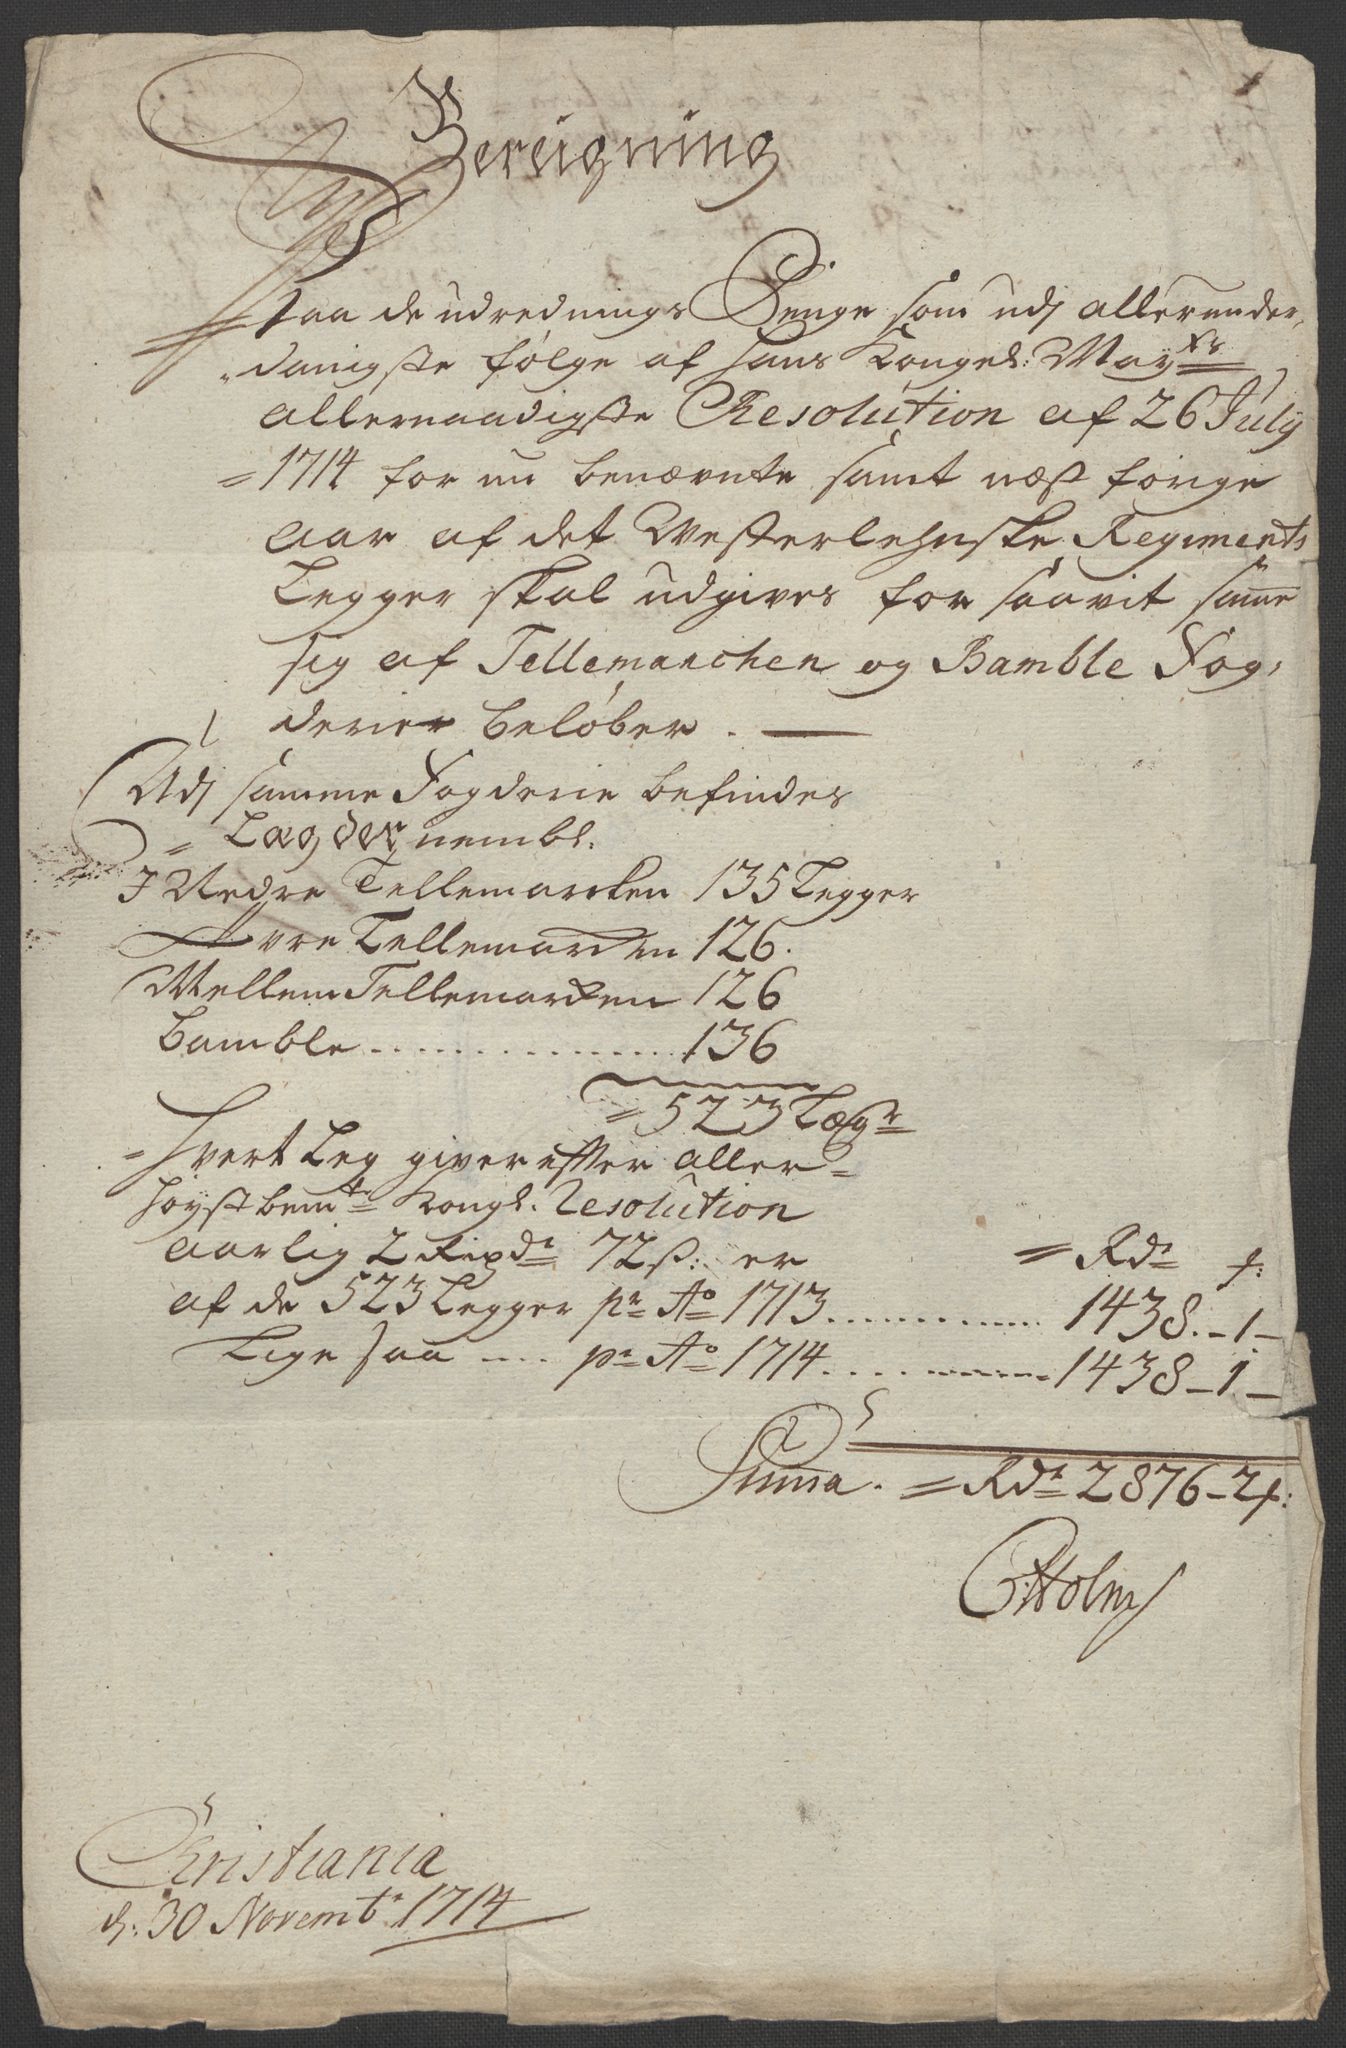 Beregning
Paa de udrednings Penge som udj allerunder,
danigste følge af Hans Kongel: May<sup>ts</sup>
allernaadigste Resolution af 26 July
1714 for nu benævnte samt næst forige
aar af det Westerlehnske Regiments
Legger skal udgives for saavit samme
sig af Tellemarchen og Bamble Fog,
derier beløber. —
Udj samme Fogderie befindes
Lægder nembl.
I Nedre Tellemarcken 135 Legger
Øvre Tellemarcken 126.
Mellem Tellemarcken 126
Bamble ................ 136
= 523 Lægr
Hvert Leg giver efter aller=
høystbemte Kongl. Resolution
aarlig 2 Rixdr 72 ß: er = Rdr f:
af de 523 Legger pr Ao 1713 ............ 1438. – 1 –
Lige saa .... pr Ao 1714 ............ 1438 – 1 –
Summa. = Rdr 2876 – 2 f:
C Holm
Christiania
d: 30 Novembr 1714